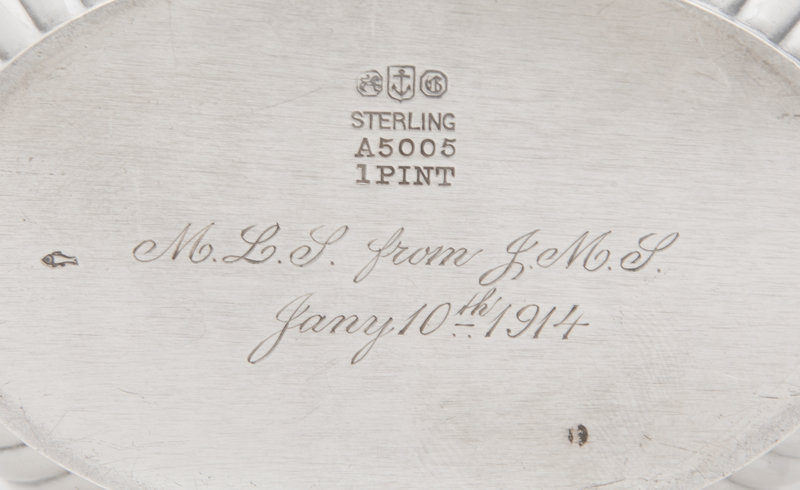 STERLING
A5005
1PINT
M.L.S. from J.M.S.
Jany 10th 1914